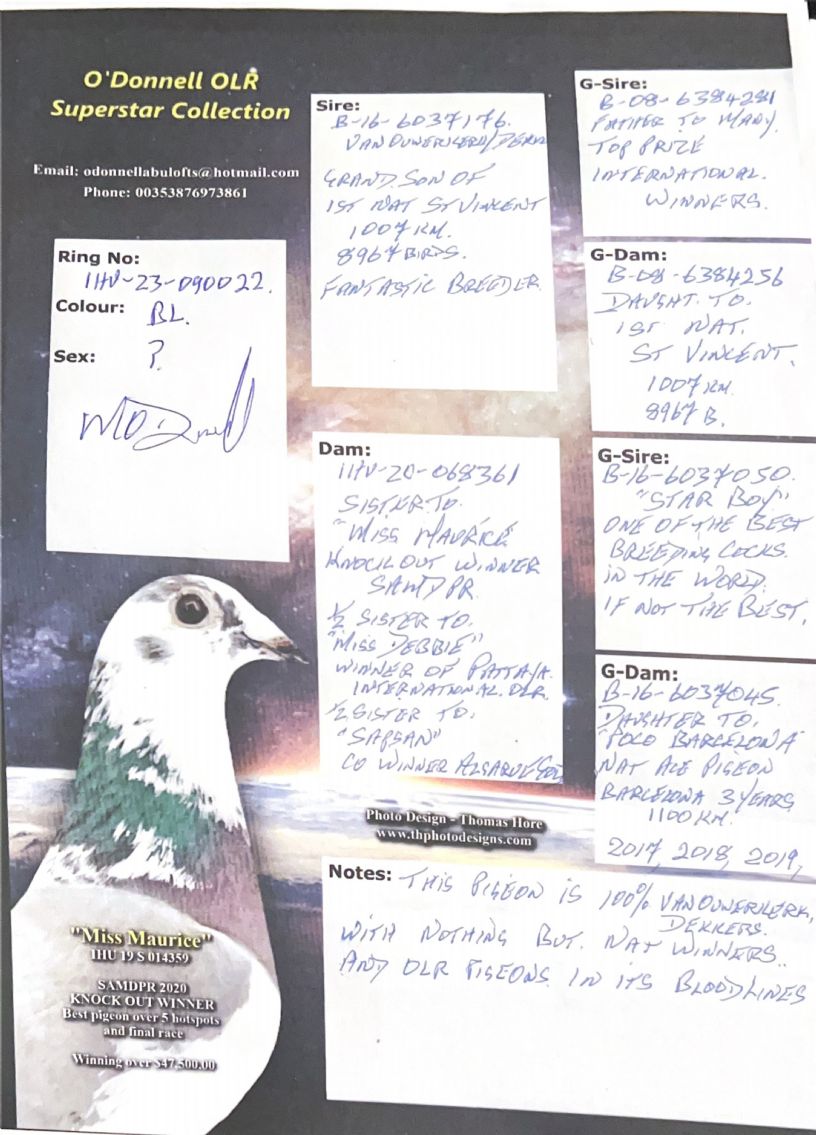 O'Donnell OLR
Superstar Collection
Email: odonnellabulofts@hotmail.com
Phone: 00353876973861
Ring No:
IHU-23-090022.
Colour: BL.
Sex: ?
Sire:
B-16-6037176.
GRANDSON OF
1ST NAT ST VINCENT
1007 KM.
8967 BIRDS.
FANTASTIC BREEDER
G-Sire:
B-08-6384281
FATHER TO MANY
TOP PRIZE
INTERNATIONAL.
WINNERS.
G-Dam:
B-08-6384256
DAUGHT. TO.
1ST NAT.
ST VINCENT.
1007 KM.
8967 B.
Dam:
IHU-20-068361
SISTER TO.
"MISS MAURICE"
KNOCKOUT WINNER
SAMDPR.
1/2 SISTER TO.
"MISS DEBBIE"
WINNER OF PATTAYA.
INTERNATIONAL. OLR.
1/2 SISTER TO.
"SAPSAN"
CO WINNER ALGARVE
G-Sire:
B-16-6037050.
"STAR BOY"
ONE OF THE BEST
BREEDING COCKS.
IN THE WORLD.
IF NOT THE BEST.
G-Dam:
B-16-6037045.
DAUGHTER TO.
"POCO BARCELONA"
NAT ACE PIGEON
BARCELONA 3 YEARS
1100 KM.
2017, 2018, 2019,
Photo Design - Thomas Hore
www.thphotodesigns.com
Notes: THIS PIGEON IS 100% VAN OUWERKERK,
DEKKERS.
WITH NOTHING BUT. NAT WINNERS.
AND OLR PIGEONS. IN ITS BLOODLINES
"Miss Maurice"
IHU 19 S 014359
SAMDPR 2020
KNOCK OUT WINNER
Best pigeon over 5 hotspots
and final race
Winning over $47,500.00